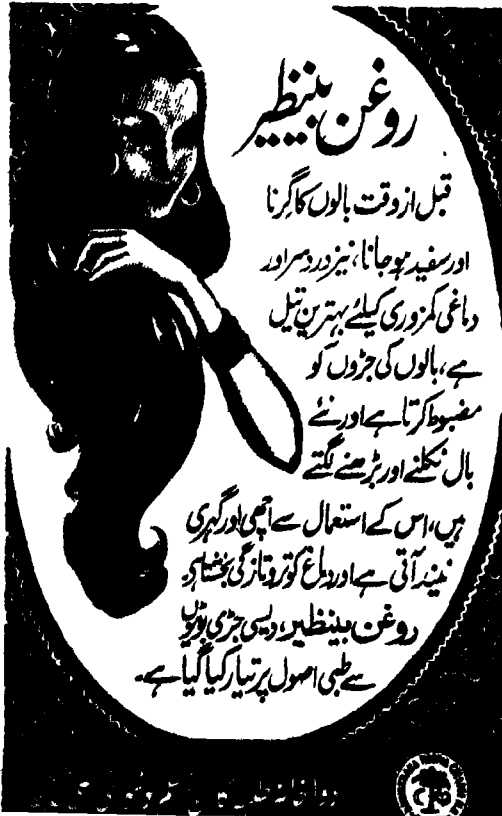 روغن بینظیر
قبل از وقت بالوں کا گرنا
اور سفید ہو جانا، نیز درد سر اور
دماغی کمزوری کیلئے بہترین تیل
ہے، بالوں کی جڑوں کو
مضبوط کرتا ہے اور نئے
بال نکلنے اور بڑھنے لگتے
ہیں، اس کے استعمال سے اچھی اور گہری
نیند آتی ہے اور دماغ کو تروتازگی بخشتا ہے۔
روغن بینظیر، دیسی جڑی بوٹیوں
سے طبی اصول پر تیار کیا گیا ہے۔
دواخانہ